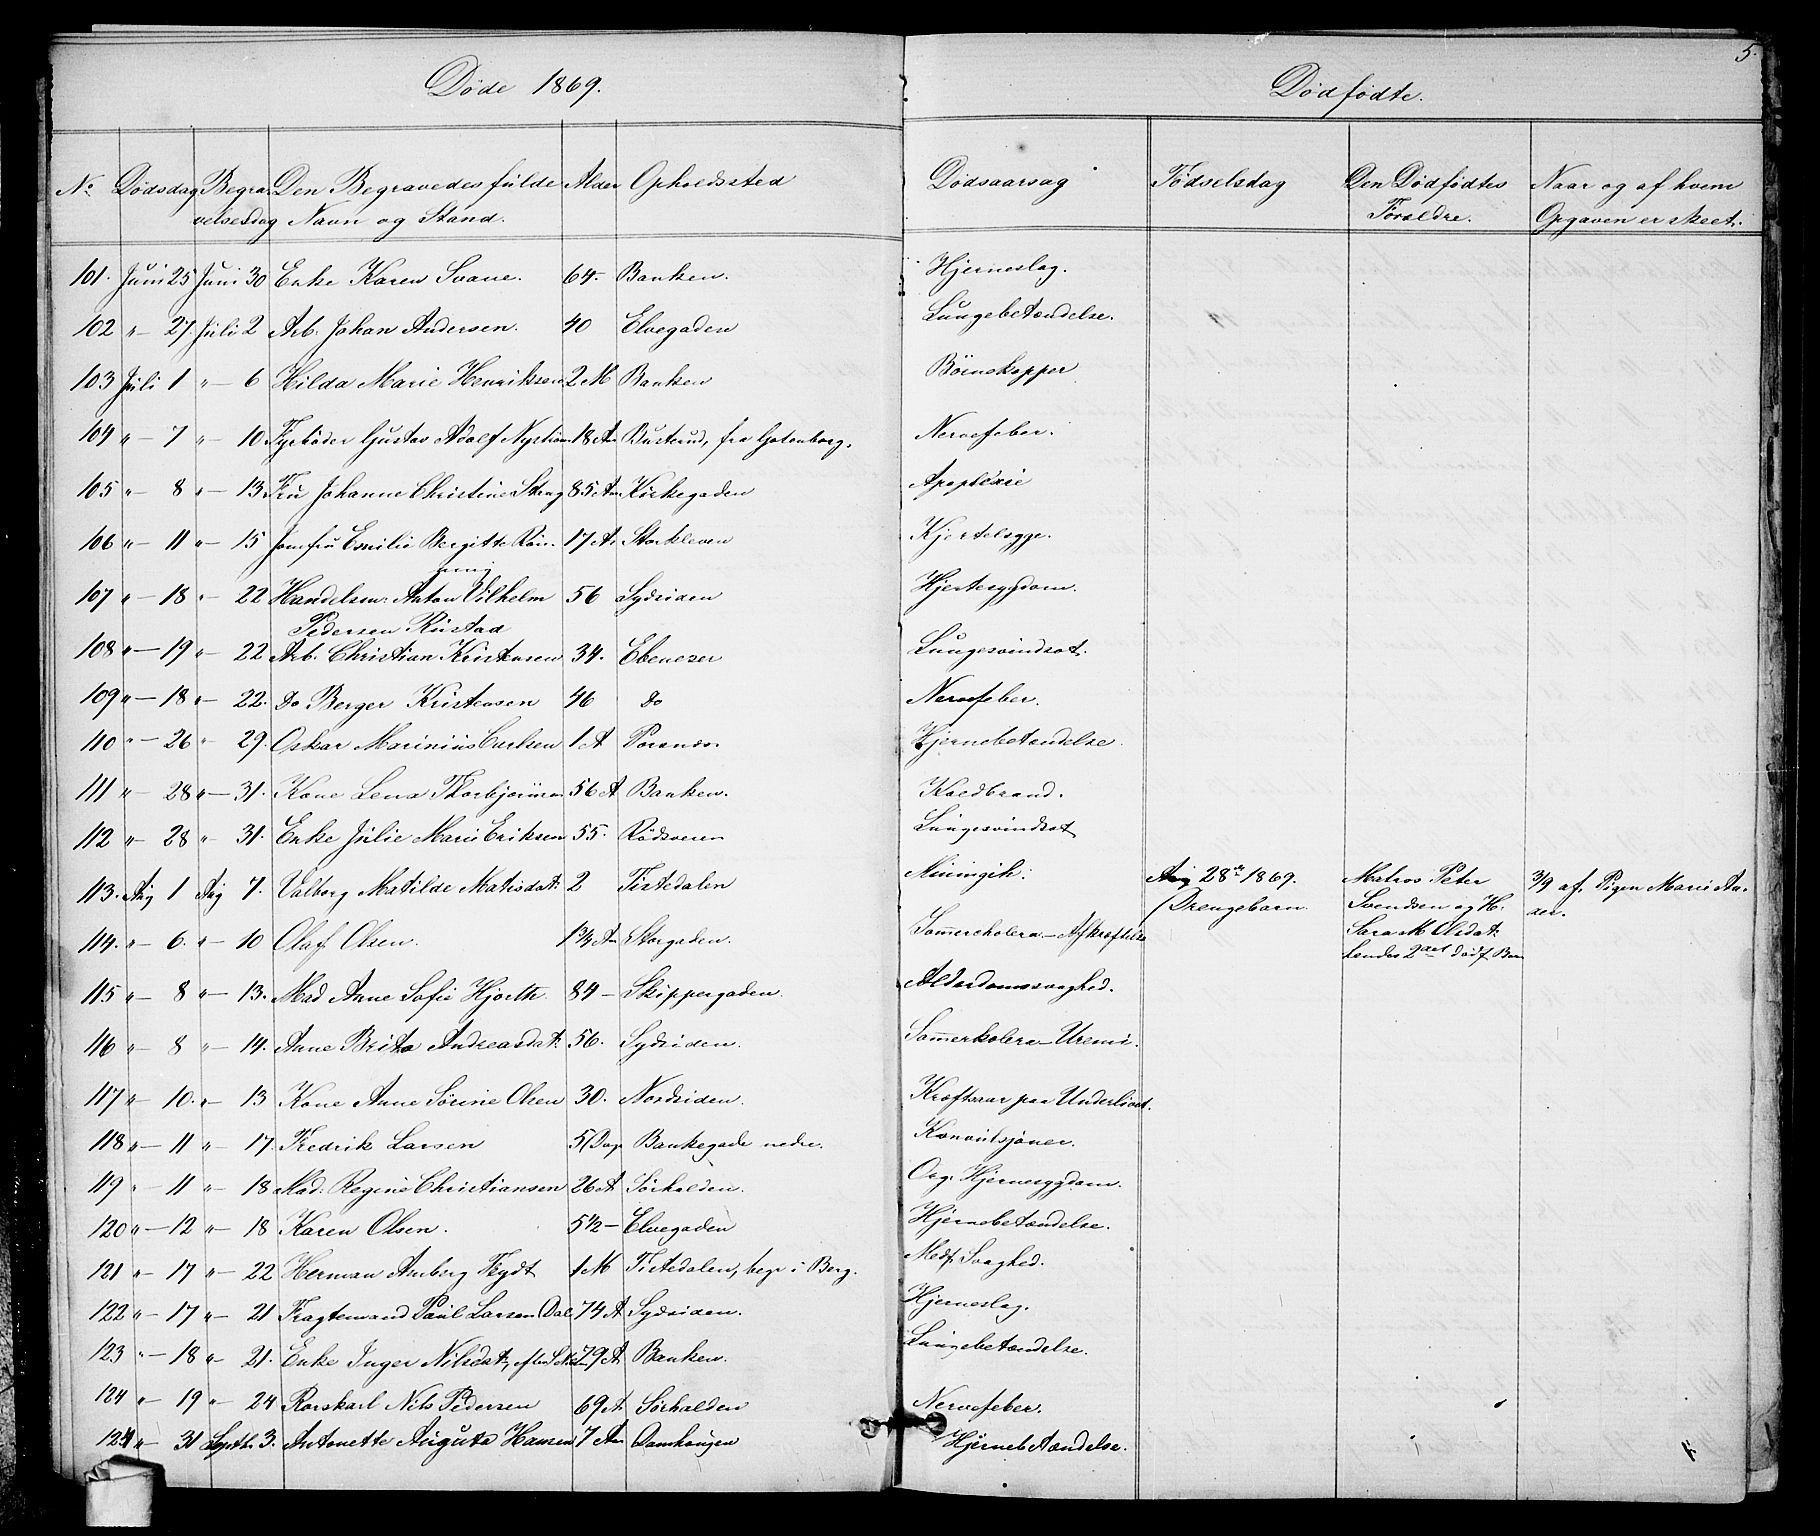 5.
Døde 1869.
Dødfødte.
No Dødsdag Begra- Den Begravedes fulde Alder Opholdssted Dødsaarsag Fødselsdag Den Dødfødtes Naar og af hvem
velsesdag Navn og Stand. Forældre. Opgaven er skeet.
101. Juni 25 Juni 30 Enke Karen Svane. 64. Banken. Hjerneslag.
102 " 27 Juli 2 Arb. Johan Andersen. 40 Elvegaden Lungebetændelse.
103 Juli 1 " 6 Hilda Marie Henriksen 2 M Banken Børnekopper
104 " 7 " 10. Fyrbøder Gustav Adolf Nystrøm 18 Aar Busterud, fra Gotenborg. Nervefeber.
105 " 8 " 13. Fru Johanne Christine Stang 85 Aar Kirkegaden Apoplexie
106 " 11 " 15 Jomfru Emilie Bergitte Røn- 17 A. Storkleven Kjertelsyge.
ning
107 " 18 " 22 Handelsm. Anton Vilhelm 56 Sydsiden Hjertesygdom.
Pedersen Rustad
108 " 19 " 22 Arb. Christian Kristensen 34. Ebeneser Lungesvindsot.
109 " 18 " 22. Do Berger Kristensen 46 Do Nervefeber.
110 " 26 " 29. Oskar Marinius Carlsen 1 A Porsnæs. Hjernebetændelse.
111 " 28 " 31. Kone Lena Thorbjørnsen 56 A Banken. Koldbrand.
112 " 28 " 31. Enke Julie Marie Eriksen 55. Rødsveien Lungesvindsot
113. Aug 1 Aug 7. Valborg Matilde Matisdat: 2 Tistedalen Miningit: Aug 28de 1869. Matros Peter 3/9 af. Pigen Marie An-
(Drengebarn. Svendsen og H. der.
114. " 6. " 10 Olaf Olsen. 1 3/4 Aar Storgaden. Somercholera – Afkræftelse Sara M. Olsdat:
hendes 2det dødf. Barn
115 " 8 " 13. Mad Anne Sofie Hjorth. 84 Skippergaden. Alderdomssvaghed.
116 " 8 " 14. Anne Brita Andreasdat: 56. Sydsiden. Somerkolera – Uremi.
117 " 10. " 13 Kone Anne Sørine Olsen 30. Nordsiden. Kræftsaar paa Underlivet.
118 " 11 " 17. Fredrik Larsen 5 Dage Bankegade nedre. Konvulsjoner.
119 " 11 " 18 Mad: Regine Christiansen 26 A Sørhalden. Org. Hjernesygdom.
120 " 12 " 18 Karen Olsen. 5 1/2 Elvegaden Hjernebetændelse.
121 " 17 " 22 Herman Amberg Frydt 1 M Tistedalen, begr i Berg. Medf. Svaghed.
122 " 17 " 21 Fragtemand Paul Larsen Dal 74 A Sydsiden. Hjerneslag.
123 " 18 " 21. Enke Inger Nilsdat, 79 A Banken. Lungebetændelse.
124 " 19 " 24 Rorskarl Nils Pedersen 69 A Sørhalden Nervefeber.
124 " 31 Septb. 3. Antonette Augusta Hansen 7 Aar Damhaugen Hjernebetændelse.